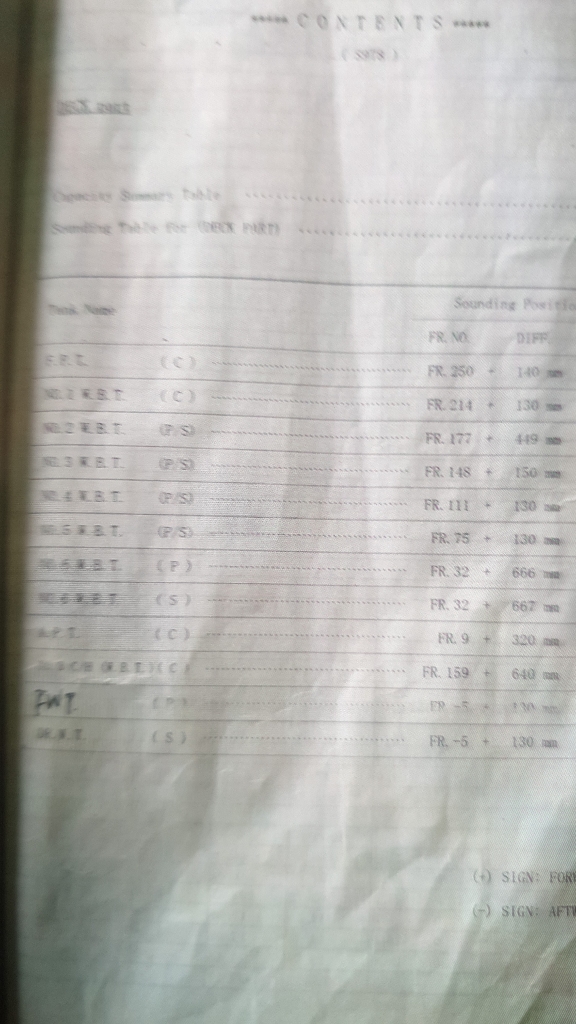 ***** C O N T E N T S *****
( S978 )
DECK PART
Capacity Summary Table ........................
Sounding Table for (DECK PART) ........................
Tank Name Sounding Positio
FR. NO. DIFF.
F.P.T. ( C ) ........................ FR. 250 + 140 mm
W.B.T. ( C ) ........................ FR. 214 + 130 mm
NO. 2 W.B.T. (P/S) ........................ FR. 177 + 449 mm
NO. 3 W.B.T. (P/S) ........................ FR. 148 + 150 mm
NO. 4 W.B.T. (P/S) ........................ FR. 111 + 130 mm
NO. 5 W.B.T. (P/S) ........................ FR. 75 + 130 mm
NO. 6 W.B.T. ( P ) ........................ FR. 32 + 666 mm
NO. 6 W.B.T. ( S ) ........................ FR. 32 + 667 mm
A.P.T. ( C ) ........................ FR. 9 + 320 mm
(W.B.T.) ( C ) ........................ FR. 159 + 640 mm
FWT. ( P ) ........................ FR. -5 + 130 mm
( S ) ........................ FR. -5 + 130 mm
(+) SIGN: FOR
(-) SIGN: AFT